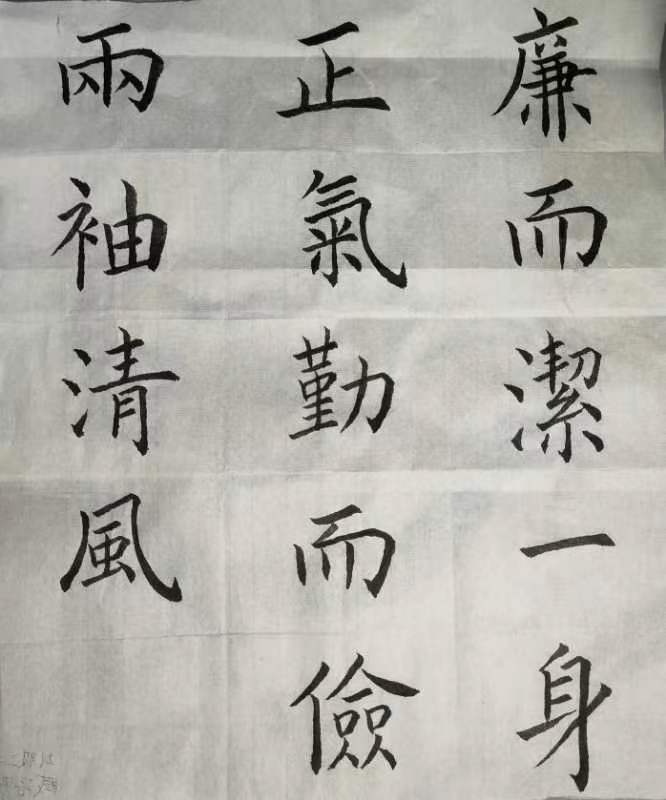 廉而潔一身
正氣勤而儉
兩袖清風